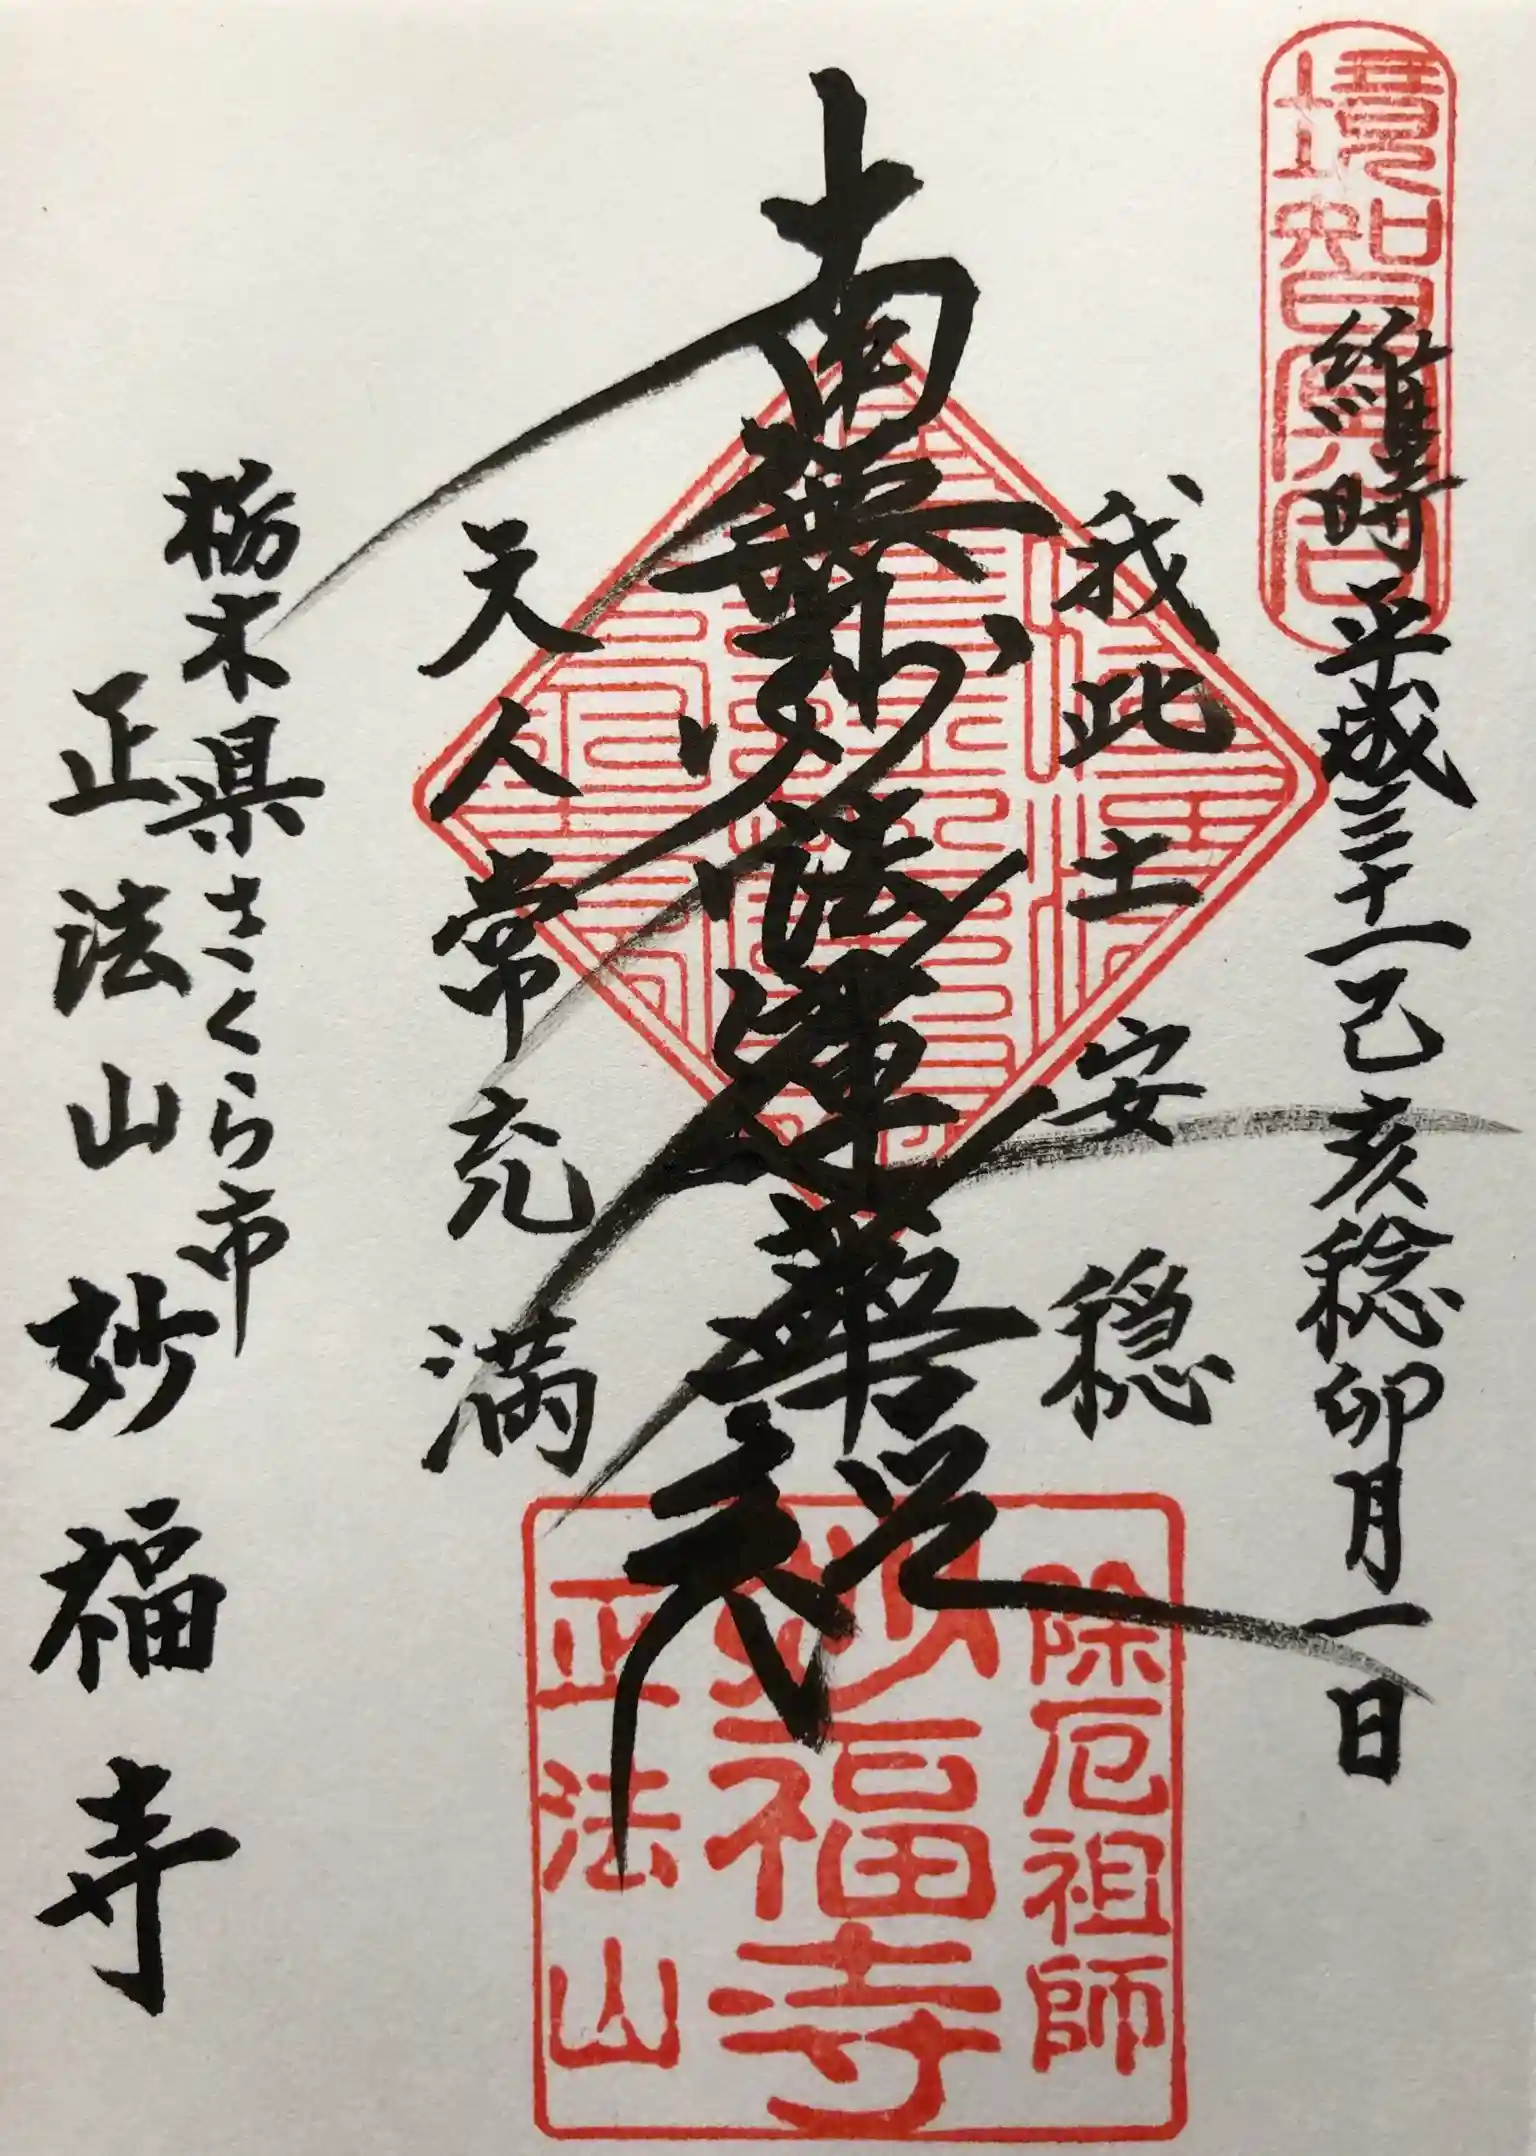 境智冥合
維時平成三十一己亥稔卯月一日
我此土安穏
南無妙法蓮華経
天人常充満
栃木県さくら市
正法山妙福寺
除厄祖師
妙福寺
正法山